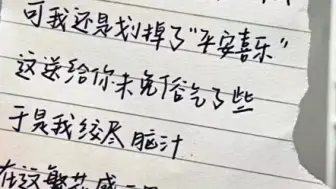 可我还是划掉了“平安喜乐”
这送给你未免俗气了些
于是我绞尽脑汁
在这繁芜盛